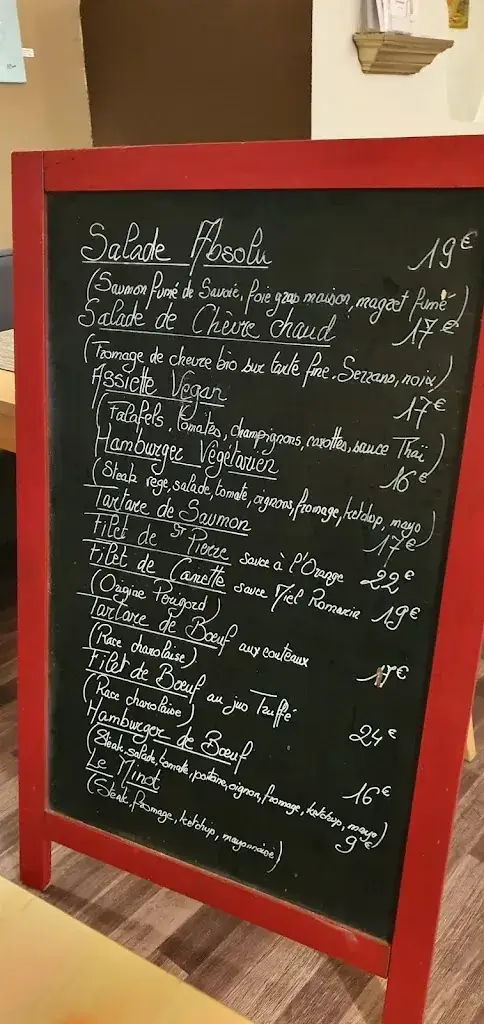 Salade Absolu 19€
(Saumon fumé de Savoie, foie gras maison, magret fumé)
Salade de Chèvre chaud 17€
(Fromage de chevre bio sur tarte fine. Serrano, noix)
Assiette Vegan 17€
(Falafels, tomates, champignons, carottes, sauce Thaï)
Hamburger Végétarien 16€
(Steak vege, salade, tomate, oignons, fromage, ketchup, mayo)
Tartare de Saumon 17€
Filet de St Pierre sauce à l'Orange 22€
Filet de Canette sauce Miel Romarin 19€
(Origine Périgord)
Tartare de Bœuf aux couteaux 17€
(Race charolaise)
Filet de Bœuf au jus Truffé 24€
(Race charolaise)
Hamburger de Bœuf 16€
(Steak, salade, tomate, poitrine, oignon, fromage, ketchup, mayo)
Le Minot 9€
(Steak, fromage, ketchup, mayonnaise)